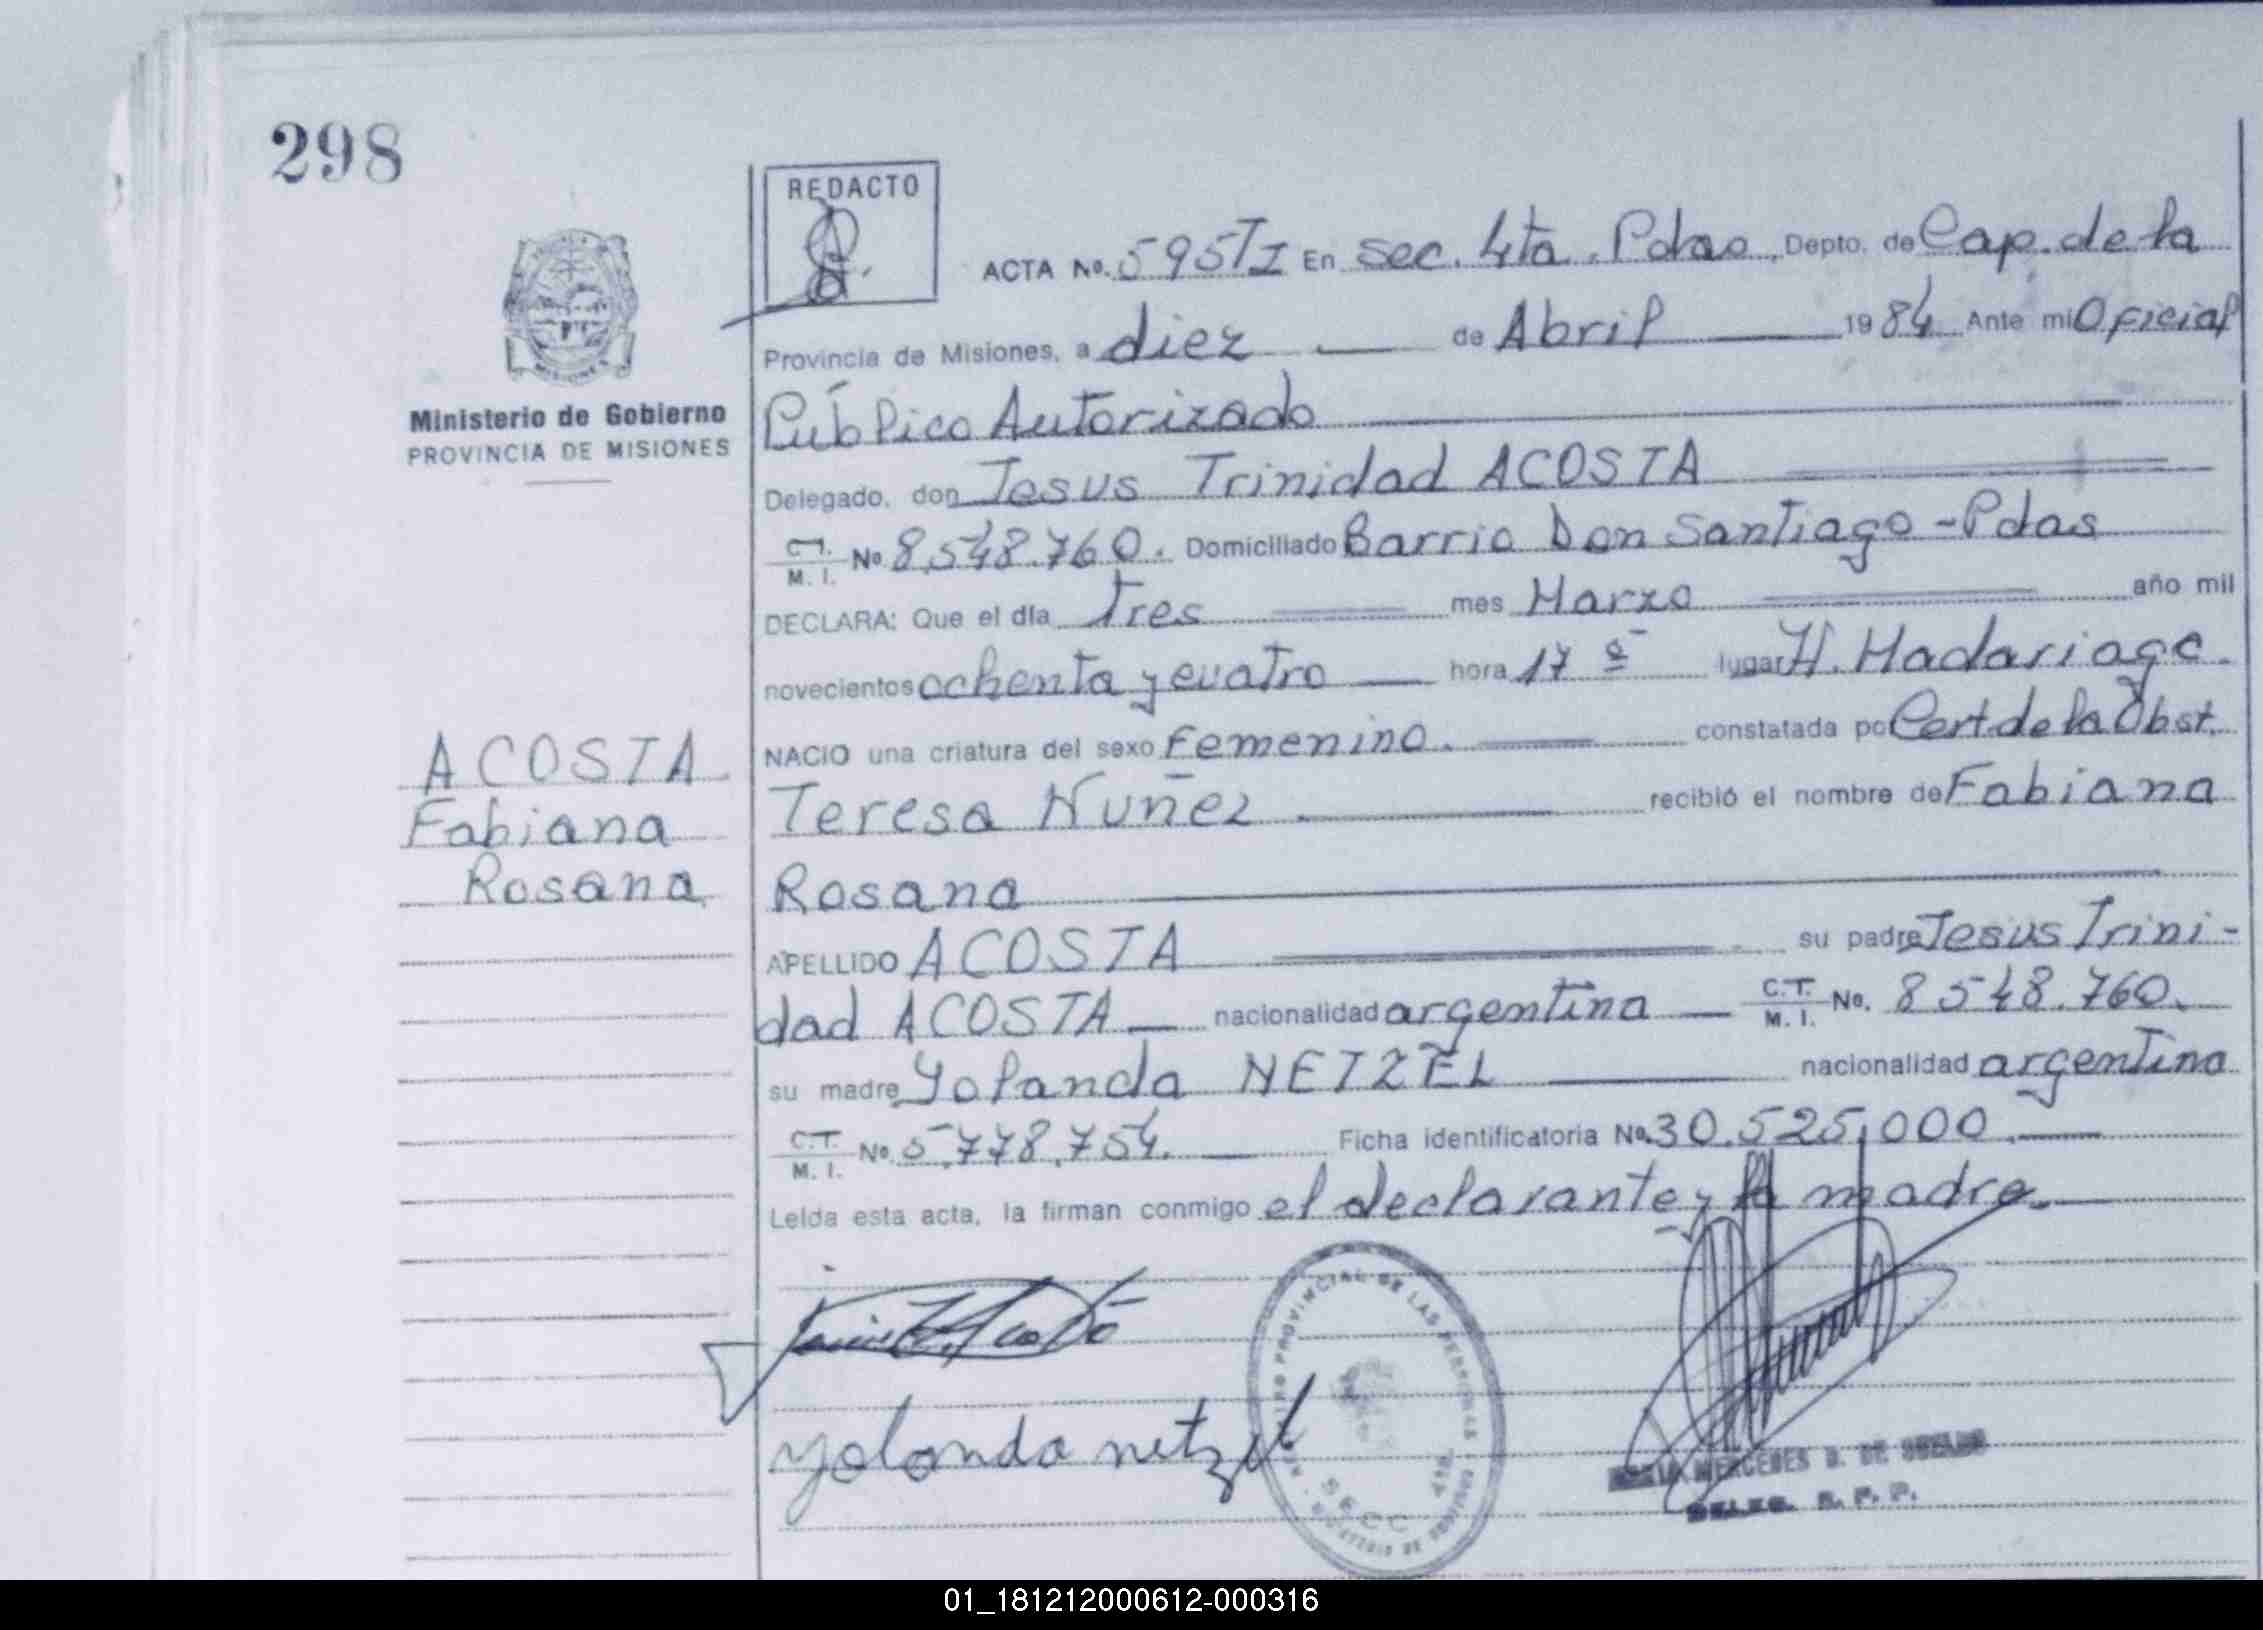 298
REDACTO
ACTA No. 595TI En Sec. 4ta. Pdas. Depto. de Cap. de la
Provincia de Misiones, a diez de Abril 1984 Ante mi Oficial
Ministerio de Gobierno
PROVINCIA DE MISIONES
Público Autorizado
Delegado, don Jesus Trinidad ACOSTA
C.T. M. I. No 8.548.760. Domiciliado Barrio Don Santiago - Pdas
DECLARA: Que el día Tres mes Marzo año mil
novecientos ochenta y cuatro hora 17 lugar H. Madariaga.
NACIO una criatura del sexo Femenino. constatada po Cert. de la Obst.
ACOSTA
Fabiana
Rosana
Teresa Nuñez recibió el nombre de Fabiana
Rosana
APELLIDO ACOSTA su padre Jesus Trini-
dad ACOSTA nacionalidad argentina C.T. M. I. No. 8548.760.
su madre Yolanda NETZEL nacionalidad argentina
C.T. M. I. No. 5.778.754. Ficha identificatoria No. 30.525.000.
Leída esta acta, la firman conmigo el declarante y la madre.
Yolanda netzel
REGISTRO PROVINCIAL DE LAS PERSONAS
SECC. 4ta.
MINISTERIO DE GOBIERNO
MERCEDES D. DE
DELEG. R. P. P.
01_181212000612-000316